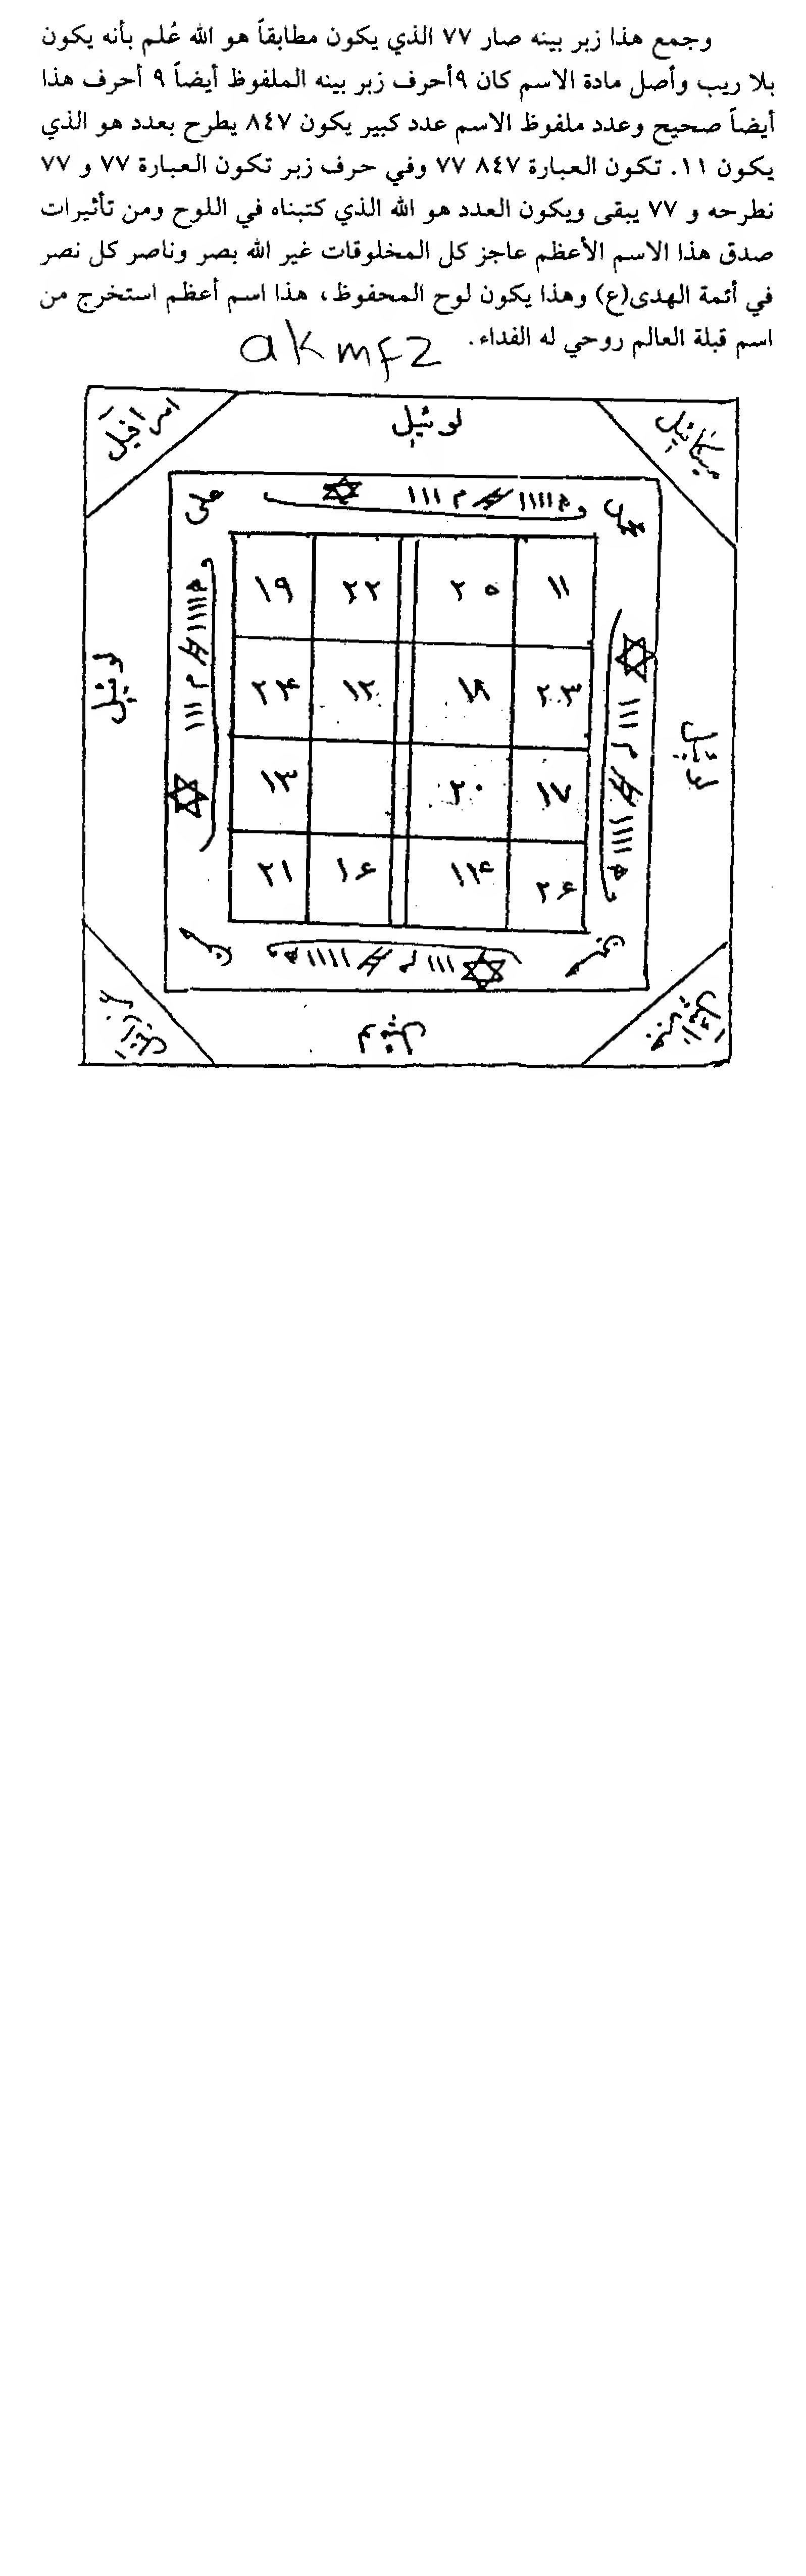 وجمع هذا زبر بينه صار ٧٧ الذي يكون مطابقاً هو الله عُلم بأنه يكون
بلا ريب وأصل مادة الاسم كان ٩أحرف زبر بينه الملفوظ أيضاً ٩ أحرف هذا
أيضاً صحيح وعدد ملفوظ الاسم عدد كبير يكون ٨٤٧ يطرح بعدد هو الذي
يكون ١١. تكون العبارة ٨٤٧ ٧٧ وفي حرف زبر تكون العبارة ٧٧ و ٧٧
نطرحه و ٧٧ يبقى ويكون العدد هو الله الذي كتبناه في اللوح ومن تأثيرات
صدق هذا الاسم الأعظم عاجز كل المخلوقات غير الله بصر وناصر كل نصر
في أئمة الهدى(ع) وهذا يكون لوح المحفوظ، هذا اسم أعظم استخرج من
اسم قبلة العالم روحي له الفداء.
akmf2
ميكائيل
لوئيل
اسرافيل
علی
١١ ٢٥ ٢٢ ١٩
٢٣ ١٨ ١٢ ٢۴
١٧ ٢٠ ١٣
٢۶ ١۴ ١۶ ٢١
لوئيل
لوئيل
لوئيل